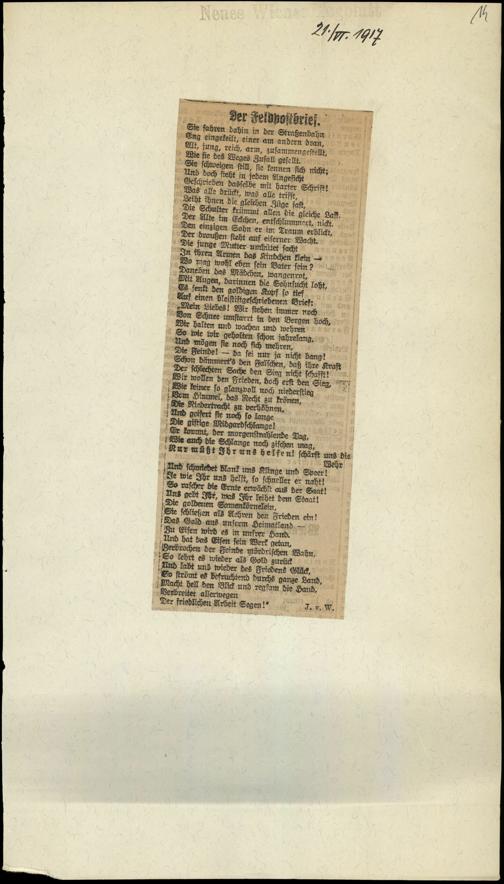 Neues Wiener Tagblatt
21./VI. 1917
Der Feldpostbrief.
Sie fahren dahin in der Straßenbahn
Eng eingekeilt, einer am andern dran,
Alt, jung, reich, arm, zusammengestellt,
Wie sie des Weges Zufall gesellt.
Sie schweigen still, sie kennen sich nicht;
Und doch steht in jedem Angesicht
Geschrieben dasselbe mit harter Schrift!
Was alle drückt, was alle trifft,
Leiht ihnen die gleichen Züge fast,
Die Schulter krümmt allen die gleiche Last.
Der Alte im Eckchen, entschlummert, nickt.
Den einzigen Sohn er im Traum erblickt,
Der draußen steht auf eiserner Wacht.
Die junge Mutter umhüllet sacht
In ihren Armen das Kindchen klein —
Wo mag wohl eben sein Vater sein?
Daneben das Mädchen, wangenrot,
Mit Augen, darinnen die Sehnsucht loht,
Es senkt den goldigen Kopf so tief
Auf einen bleistiftgeschriebenen Brief:
„Mein Liebes! Wir stehen immer noch
Von Schnee umstarrt in den Bergen hoch,
Wir halten und wachen und wehren
So wie wir gehalten schon jahrelang,
Und mögen sie noch sich mehren,
Die Feinde! — da sei nur ja nicht bang!
Schon dämmert's den Falschen, daß ihre Kraft
Der schlechten Sache den Sieg nicht schafft!
Wir wollen den Frieden, doch erst den Sieg,
Wie keiner so glanzvoll noch niederstieg
Vom Himmel, das Recht zu krönen,
Die Niedertracht zu verhöhnen,
Und geifert sie noch so lange
Die giftige Midgardschlange!
Er kommt, der morgenstrahlende Tag,
Wie auch die Schlange noch zischen mag,
Nur müßt Ihr uns helfen! schärft uns die
Wehr
Und schmiedet blank uns Klinge und Speer!
Je wie Ihr uns helft, so schneller er naht!
So rascher die Ernte erwächst aus der Saat!
Uns gebt Ihr, was Ihr leihet dem Staat!
Die goldenen Samenkörnelein,
Sie schließen als Aehren den Frieden ein!
Das Gold aus unserm Heimatland —
Zu Eisen wird es in unsrer Hand.
Und hat das Eisen sein Werk getan,
Zerbrochen der Feinde mördrischen Wahn,
So kehrt es wieder als Gold zurück
Und labt uns wieder des Friedens Glück,
So strömt es befruchtend durchs ganze Land,
Macht hell den Blick und regsam die Hand,
Verbreitet allerwegen
Der friedlichen Arbeit Segen!“
J. v. W.